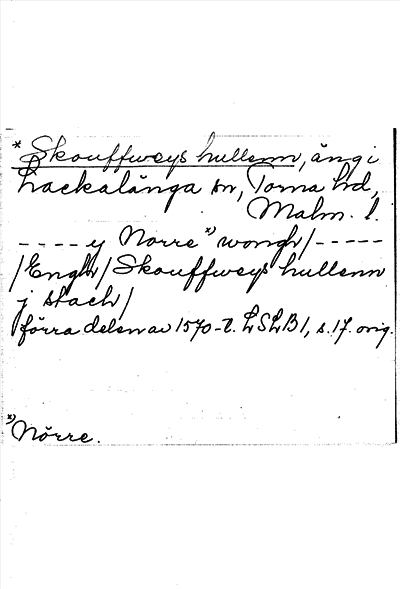 * Skouffweys hullenn, äng i
Lackalänga sn, Torna hd,
Malm. l.
----y Norre *) wongh/-----
/Engh/Skouffweys hullenn
j stach/
förra delen av 1570-t. LSLB 1, s. 17. orig.
*) Nörre.